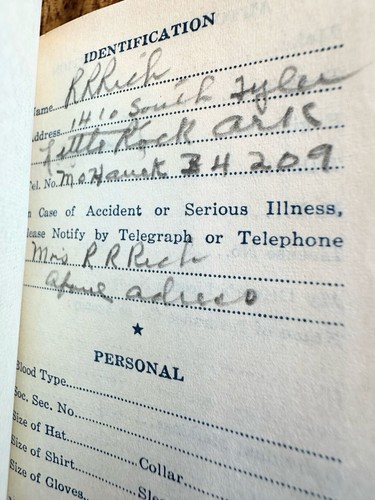 IDENTIFICATION
Name R R Rich
Address 1410 South Tyler
Little Rock Ark
Tel. No. MoHawk 34209
In Case of Accident or Serious Illness,
Please Notify by Telegraph or Telephone
Mrs R R Rich
Above adreso
★
PERSONAL
Blood Type
Soc. Sec. No.
Size of Hat
Size of Shirt Collar
Size of Gloves